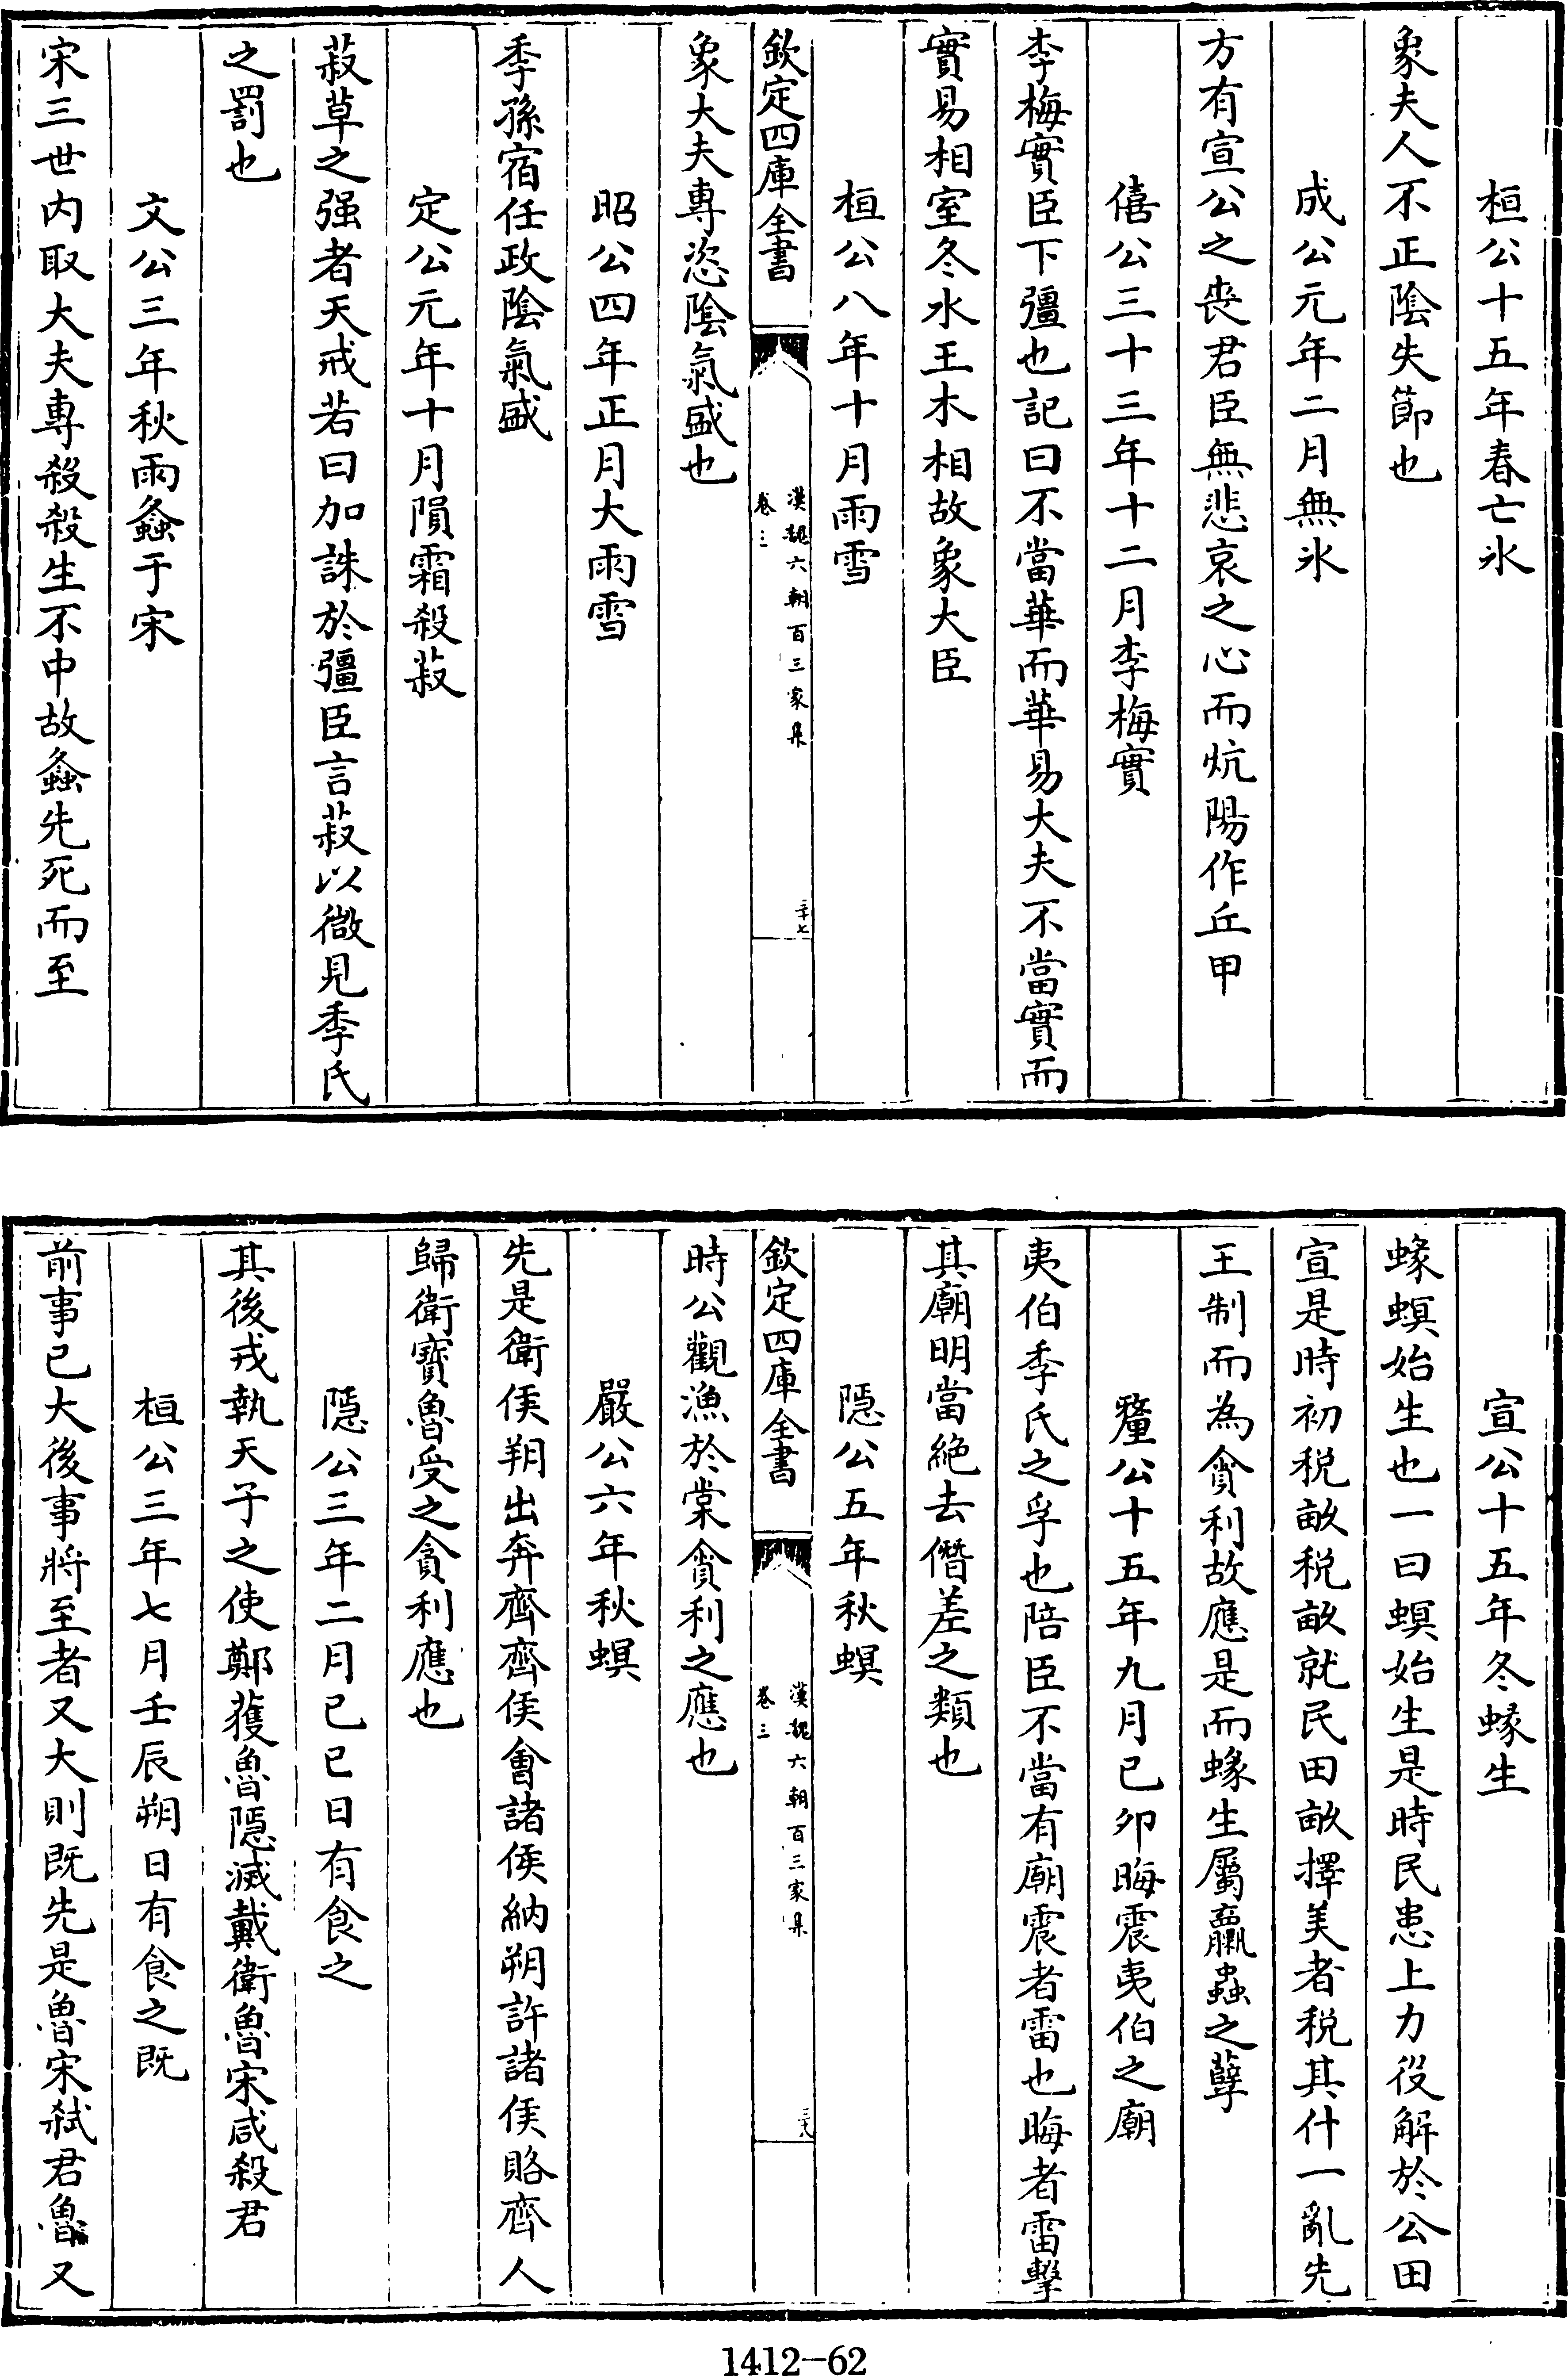 桓公十五年春亡氷
象夫人不正陰失節也
成公元年二月無氷
方有宣公之喪君臣無悲哀之心而炕陽作丘甲
僖公三十三年十二月李梅實
李梅實臣下彊也記曰不當華而華易大夫不當實而
實易相室冬水王木相故象大臣
桓公八年十月雨雪
欽定四庫全書
漢魏六朝百三家集
卷三
三十七
象大夫專恣陰氣盛也
昭公四年正月大雨雪
季孫宿任政陰氣盛
定公元年十月隕霜殺菽
菽草之强者天戒若曰加誅於彊臣言菽以微見季氏
之罰也
文公三年秋雨螽于宋
宋三世内取大夫專殺殺生不中故螽先死而至
宣公十五年冬蝝生
蝝螟始生也一曰螟始生是時民患上力役解於公田
宣是時初税畝税畝就民田畝擇美者税其什一亂先
王制而為貪利故應是而蝝生屬蠃蟲之孽
釐公十五年九月己卯晦震夷伯之廟
夷伯季氏之孚也陪臣不當有廟震者雷也晦者雷擊
其廟明當絶去僭差之類也
隱公五年秋螟
欽定四庫全書
漢魏六朝百三家集
卷三
三十八
時公觀漁於棠貪利之應也
嚴公六年秋螟
先是衛侯朔出奔齊齊侯會諸侯納朔許諸侯賂齊人
歸衛寶魯受之貪利應也
隱公三年二月己巳日有食之
其後戎執天子之使鄭獲魯隱滅戴衛魯宋咸殺君
桓公三年七月壬辰朔日有食之既
前事已大後事將至者又大則既先是魯宋弑君魯又
1412-62